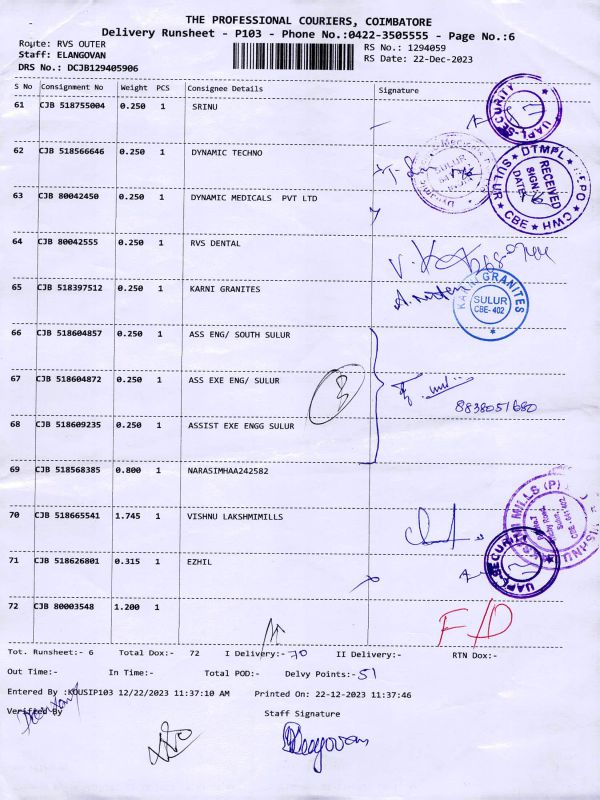 THE PROFESSIONAL COURIERS, COIMBATORE
Delivery Runsheet - P103 - Phone No.:0422-3505555 - Page No.:6
Route: RVS OUTER RS No.: 1294059
Staff: ELANGOVAN RS Date: 22-Dec-2023
DRS No.: DCJB129405906
S No Consignment No Weight PCS Consignee Details Signature
61 CJB 518755004 0.250 1 SRINU
UAPL-SECURITY
62 CJB 518566646 0.250 1 DYNAMIC TECHNO
SULUR
DTMPL
RECEIVED
SIGN
DATE
SULUR CBE HWC
63 CJB 80042450 0.250 1 DYNAMIC MEDICALS PVT LTD
64 CJB 80042555 0.250 1 RVS DENTAL
65 CJB 518397512 0.250 1 KARNI GRANITES
KARNI GRANITES
SULUR
CBE-402
66 CJB 518604857 0.250 1 ASS ENG/ SOUTH SULUR
67 CJB 518604872 0.250 1 ASS EXE ENG/ SULUR
8838051680
68 CJB 518609235 0.250 1 ASSIST EXE ENGG SULUR
69 CJB 518568385 0.800 1 NARASIMHAA242582
70 CJB 518665541 1.745 1 VISHNU LAKSHMIMILLS
MILLS (P)
VISHNU
71 CJB 518626801 0.315 1 EZHIL
UAPL-SECURITY
72 CJB 80003548 1.200 1
F/D
Tot. Runsheet:- 6 Total Dox:- 72 I Delivery:- 70 II Delivery:- RTN Dox:-
Out Time:- In Time:- Total POD:- Delvy Points:- 51
Entered By :KOUSIP103 12/22/2023 11:37:10 AM Printed On: 22-12-2023 11:37:46
Verified By Staff Signature